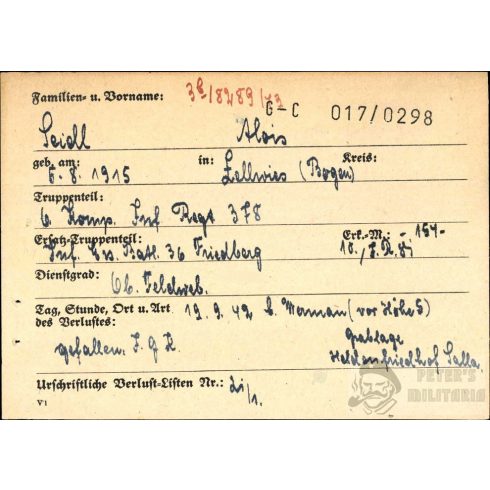 Familien- u. Vorname: 38/8289/43 G-C 017/0298
Seidl Alois
geb. am: in: Kreis:
6.8.1915 Zellwies (Bogen)
Truppenteil:
6. Komp. Inf. Regt. 378
Ersatz-Truppenteil: Erk.-M.: -154-
Inf. Ers. Batl. 36 Friedberg 10./
Dienstgrad:
Ob. Feldweb.
Tag, Stunde, Ort u. Art 19.9.42 b. (vor Höhe 5)
des Verlustes: Grablage
gefallen: Heldenfriedhof Salla
Urschriftliche Verlust-Listen Nr.:
V1
PETER'S
MILITARIA